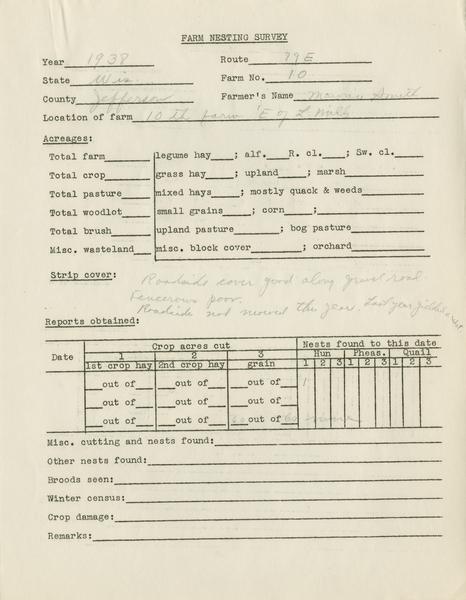 FARM NESTING SURVEY
Year 1938 Route 79E
State Wis. Farm No. 10
County Jefferson Farmer's Name Smith
Location of farm 10th farm E of L. Mills
Acreages:
Total farm legume hay ; alf. R. cl. ; Sw. cl.
Total crop grass hay ; upland ; marsh
Total pasture mixed hays ; mostly quack & weeds
Total woodlot small grains ; corn ;
Total brush upland pasture ; bog pasture
Misc. wasteland misc. block cover ; orchard
Strip cover: Roadside cover good along gravel road.
Fencerows poor.
Roadside not mowed this year. Last year
Reports obtained:
Crop acres cut Nests found to this date
Date 1 2 3 Hun Pheas. Quail
1st crop hay 2nd crop hay grain 1 2 3 1 2 3 1 2 3
out of out of out of 1
out of out of out of
out of out of out of
Misc. cutting and nests found:
Other nests found:
Broods seen:
Winter census:
Crop damage:
Remarks: